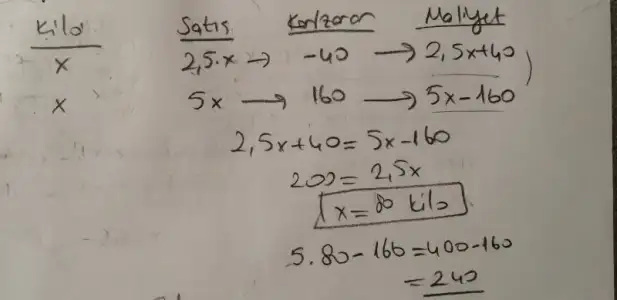 Kilo Satış Kar/zarar Maliyet
x 2,5.x → -40 → 2,5x+40
x 5x → 160 → 5x-160
2,5x+40=5x-160
200=2,5x
x=80 kilo
5.80-160=400-160
=240